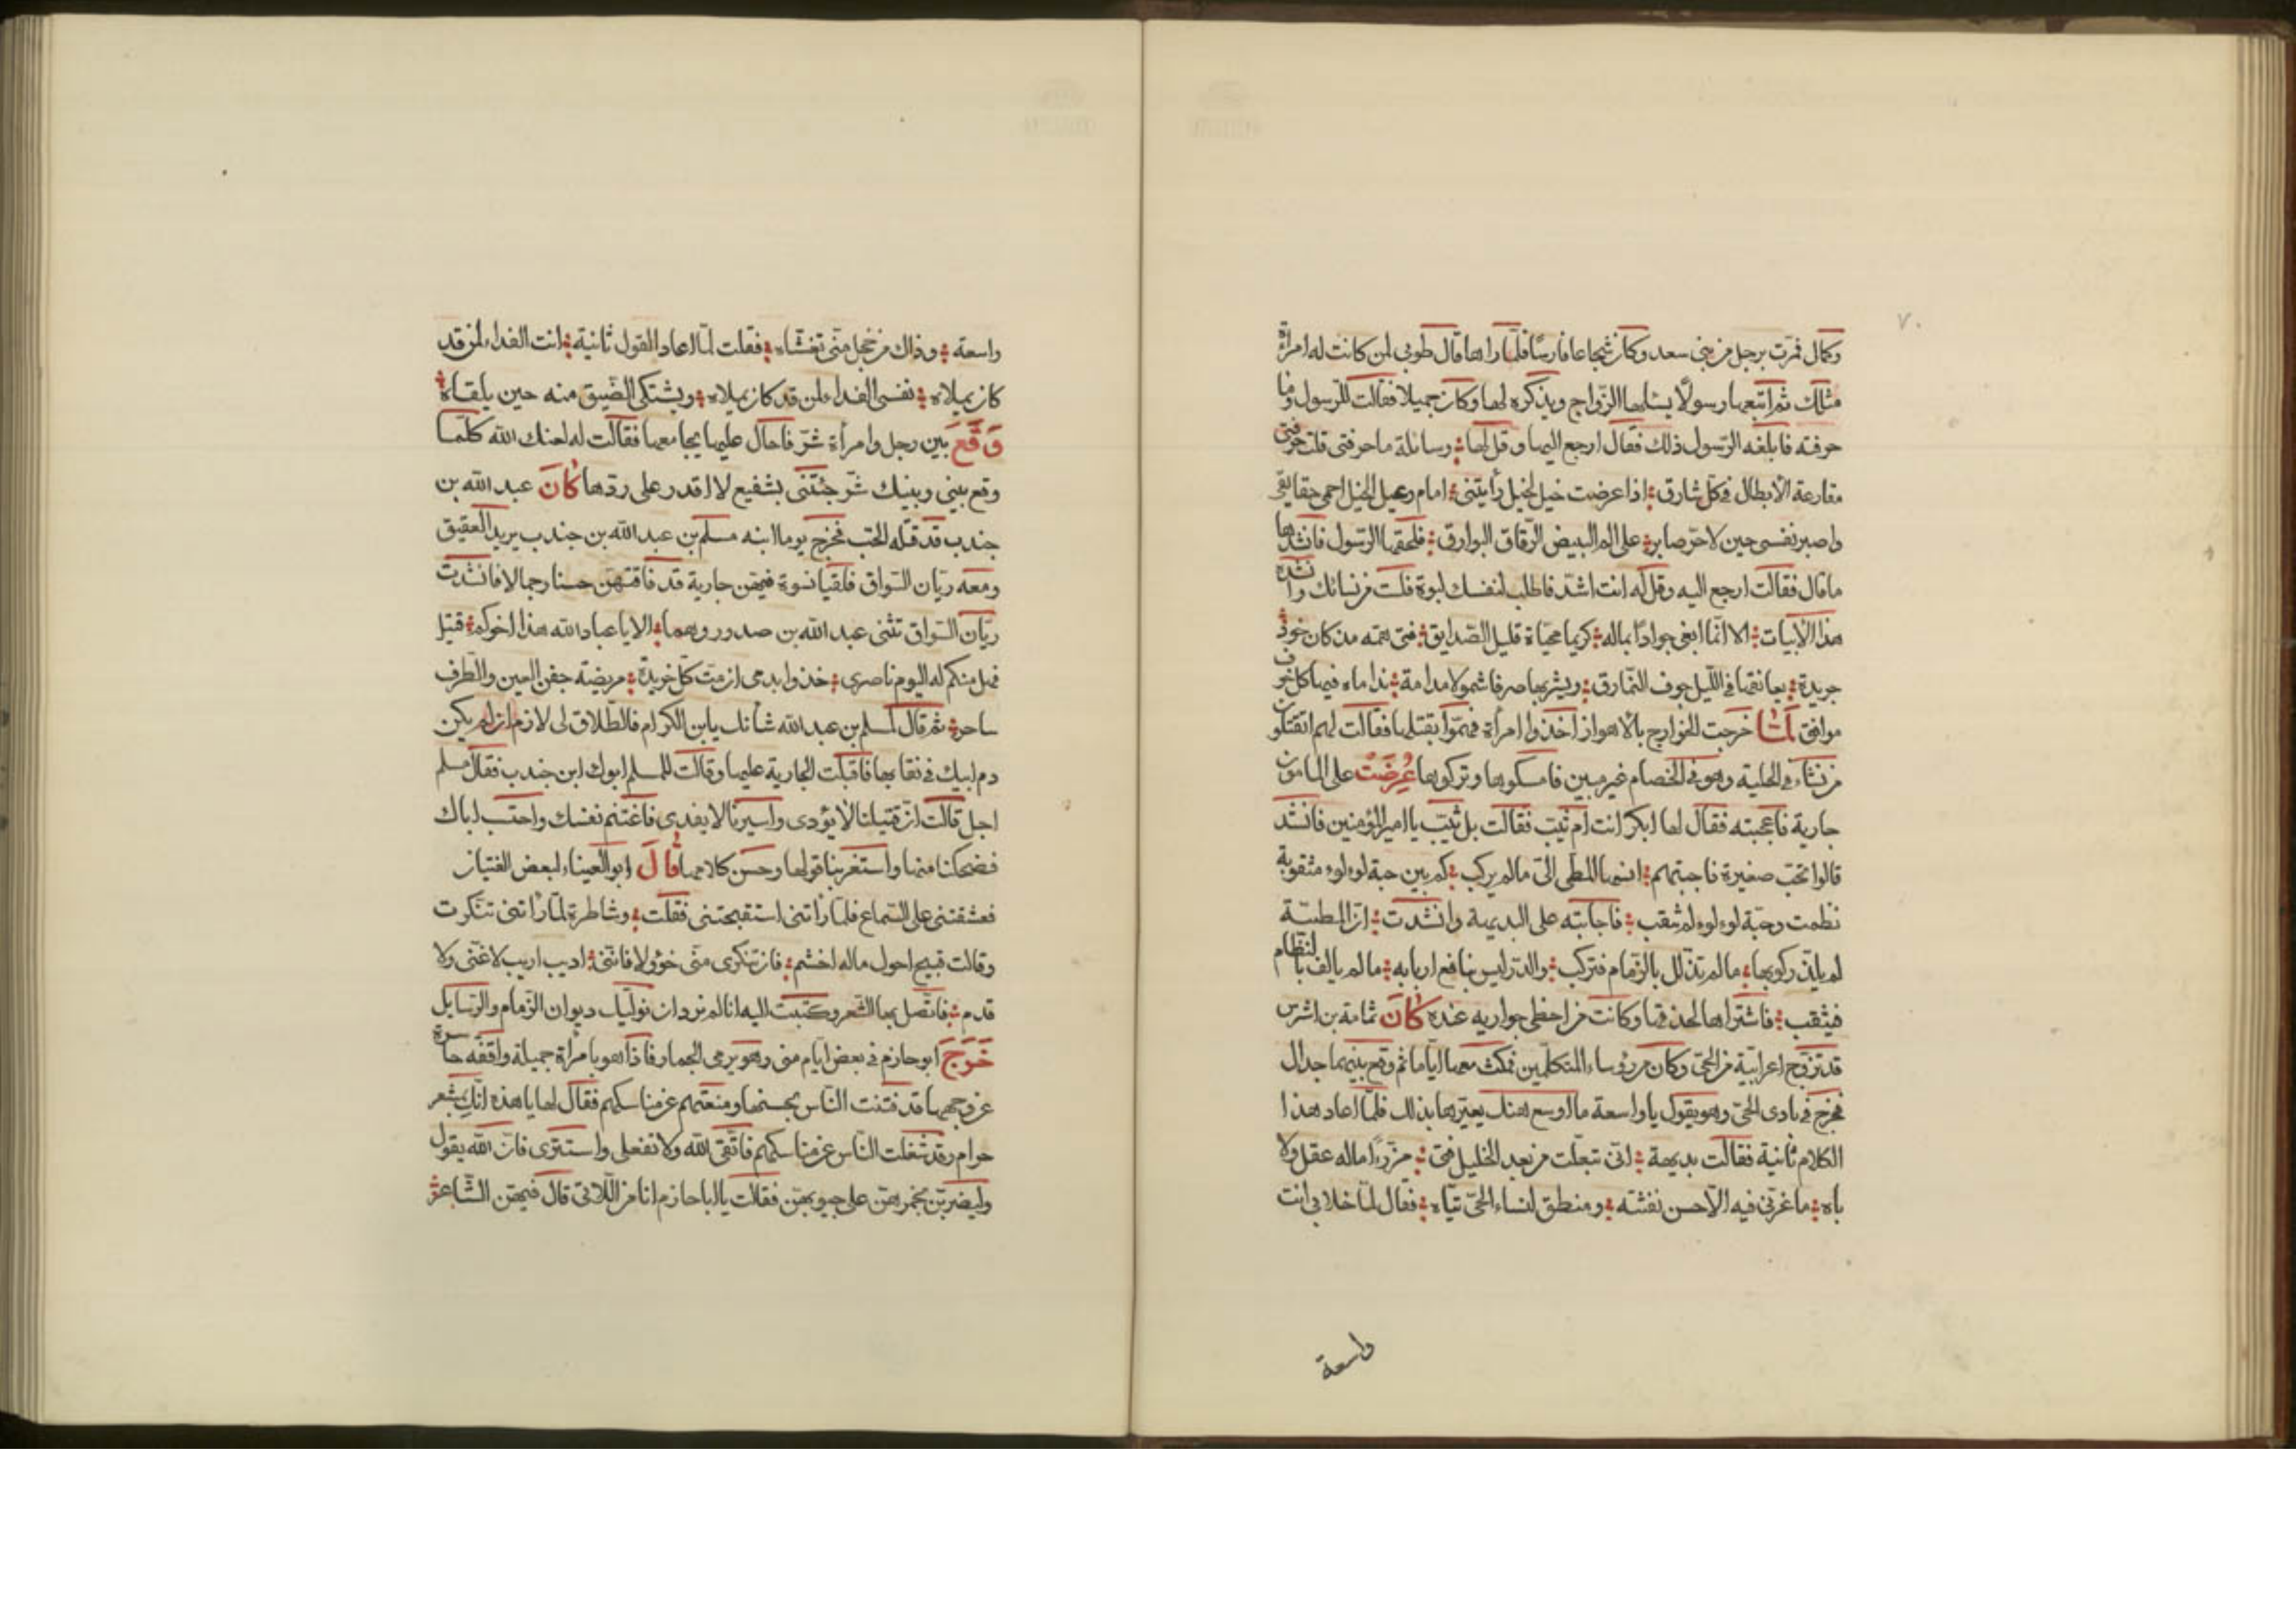 ٧٠
وكمال فمرّت برجل من بنى سعد وكان شجاعا فارسًا فلمّا راها قال طوبى لمن كانت له امراة
مثلك ثم اتبعها رسولًا يسئلها الزّواج ويذكره لها وكان جميلا فقالت للرّسول وما
حرفته فابلغه الرّسول ذلك فقال ارجع اليها وقل لها وسائلة ما حرفتى قلت حرفتى
مقارعة الأبطال فى كل شارق اذا عرضت خيل لخيل رأيتنى امام رعيل الخيل احمى حقايقى
واصبر نفسى حين لا حرّ صابر على الم البيض الرّقاق البوارق فلحقها الرّسول فانشدها
ما قال فقالت ارجع اليه وقل له انت اشد فاطلب لنفسك لبوة فلست من نسائك وانشده
هذا الأبيات الا انّما ابغى جوادًا بماله كريما محيّاه قليل الصّدايق فتى همّه مذ كان خود
خريدة يعانقها فى اللّيل جوف النّمارق ويشربها صرفا شمولا مدامة نداماه فيها كل خرق
موافق لمّا خرجت الخوارج بالأهواز اخذوا امرأة فهمّوا بقتلها فقالت لهم اتقتلون
من ينشاء فى الحلية وهو فى الخصام غير مبين فامسكوها وتركوها عُرِضَتْ على المامون
جارية فاعجبته فقال لها ابكر انت أم ثيّب فقالت بل ثيّب يا امير المؤمنين فانشد
قالوا تحبّ صغيرة فاجبتهم اشهى المطى الىّ ما لم يركب كم بين حبة لوءلوء مثقوبة
نظمت وحبّة لوءلوء لم تثقب فاجابته على البديهة وانشدت انّ المطيّة
لم يلذّ ركوبها ما لم تذلّل بالزّمام فتركب والدّر ليس بنافع اربابه ما لم يالف بالنظّام
فيثقب فاشتراها لحذقها وكانت من احظى جواريه عنده كَانَ ثمامة بن اشرس
قد تزوّج اعرابيّة من الحىّ وكان من رؤساء المتكلّمين فمكث معها ايّاما ثم وقع بينهما جدال
فخرج فى نادى الحىّ وهو يقول يا واسعة ما اوسع هنك يعيّرها بذلك فلمّا اعاد هذا
الكلام ثانية فقالت بديهة انى تبعّلت من بعد الخليل فتى مرزّءًا ماله عقل ولا
باه ما غرّنى فيه الّا حسن نقشته ومنطق لنساء الحىّ تيّاه فقال لمّا خلا بى انت
واسعة
واسعة وذاك من خجل منّى تغشّاه فقلت لمّا اعاد القول ثانية انت الفداء لمن قد
كان يملاه نفسى الفداء لمن قد كان يملاه ويشتكى الضّيق منه حين يلقاه
وَقَعَ بين رجل وامرأة شرّ فاحال عليها يجامعها فقالت له لعنك الله كلّما
وقع بينى وبينك شرّ جئتنى بشفيع لا اقدر على ردّها كَانَ عبد الله بن
جندب قد قتله الحب فخرج يوما ابنه مسلم بن عبد الله بن جندب يريد العقيق
ومعه ريّان السّواق فلقيا نسوة فيهن جارية قد فاقتهنّ حسنا وجمالا فانشدت
ريّان السّواق بيتى عبد الله بن جندب وهما الا يا عباد الله هذا اخوكم قتيل
فهل منكم له اليوم ناصرى خذوا بدمى ان متّ كلّ خريدة مريضة جفن العين والطّرف
ساحر ثم قال لمسلم بن عبد الله شانك يابن الكرام فالطّلاق لى لازم ان لم يكن
دم ابيك فى نقابها فاقبلت الجارية عليها وقالت للمسلم ابوك ابن جندب فقال مسلم
اجل قالت انّ قتيلنا لا يؤدى واسيرنا لا يفدى فاغتنم نفسك واحتسب اباك
فضحكنا منها واستغربنا قولها وحسن كلامها قَالَ ابو العيناء لبعض الفتيان
فعشقتنى على السّماع فلمّا رأتنى استقبحتنى فقلت وشاطرة لمّا رأتنى تنكّرت
وقالت قبيح احول ماله جسم فان تنكرى منّى حؤولا فاننى اديب اريب لا غنى ولا
فدم فاتّصل بها الشّعر وكتبت اليه انا لم نرد ان نولّيك ديوان الزّمام والرّسايل
خَرَجَ ابو حازم فى بعض ايّام منى وهو يرمى الجمار فاذا هو بامرأة جميلة واقفه حاسرة
عن وجهها قد فتنت النّاس بحسنها ومنعتهم عن مناسكهم فقال لها يا هذه انّك بمشعر
حرام وقد شغلت النّاس عن مناسكهم فاتّقى الله ولا تفعلى واستترى فانّ الله يقول
وليضربن بخمرهنّ على جيوبهن فقالت يا ابا حازم انا من اللّاتى قال فيهنّ الشّاعر